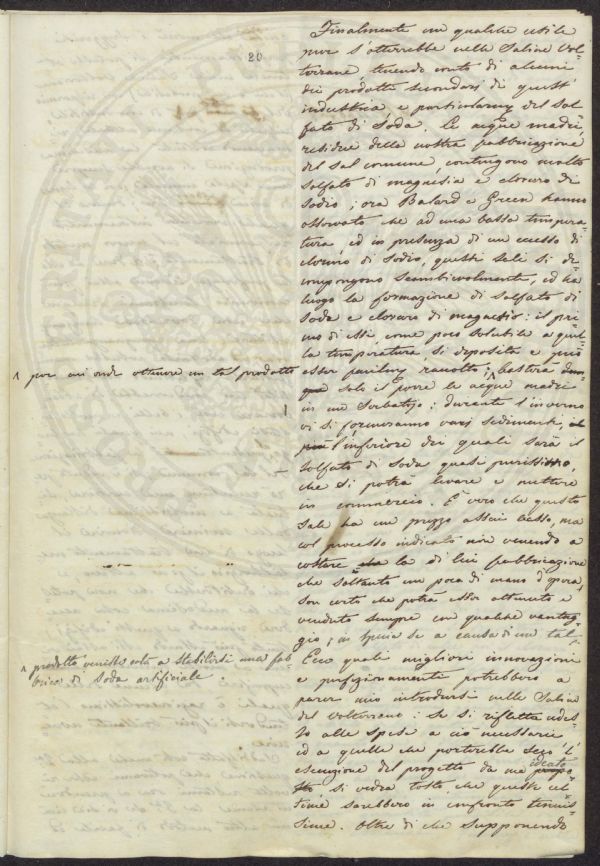 20
Finalmente un qualche utile
pur s'otterrebbe nelle Saline Vol-
terrane, tenendo conto di alcuni
dei prodotti secondarj di quest'
industria e particolarm del sol-
fato di Soda. Le acque madri,
residue della nostra fabbricazione
del sal comune, contengono molto
solfato di magnesia e cloruro di
sodio; ora Balard e Green hanno
osservato che ad una bassa tempera-
tura, ed in presenza di un eccesso di
cloruro di sodio, questi sali si de-
compongono scambievolmente, ed ha
luogo la formazione di solfato di
soda e cloruro di magnesio: il pri-
mo di essi, come poco solubile a quel-
la temperatura si deposita e può
esser raccolto; basterà
^ per cui onde ottenere un tal prodotto
solo il porre le acque madri
in un Serbatojo: durante l'inverno
vi si formeranno varj sedimenti,
l'inferiore dei quali sarà il
solfato di soda quasi purissimo,
che si potrà levare e mettere
in commercio. È vero che questo
sale ha un prezzo assai basso, ma
col processo indicato non venendo a
costare la di lui fabbricazione
che soltanto un poca di mano d'opera,
son certo che potrà esser ottenuto e
venduto sempre con qualche vantag-
gio; in specie se a causa di un tal
^ prodotto venisse a stabilirsi una fab-
brica di Soda artificiale.
Ecco quali migliori innovazioni
e perfezionamenti potrebbero a
parer mio introdursi nelle Saline
del volterrano: se si rifletta
alle spese a ciò necessarie
ed a quelle che porterebbe seco l'
esecuzione del progetto da me ideato
si vedrà tosto che queste ul-
time sarebbero in confronto tenuis-
sime. Oltre di che supponendo